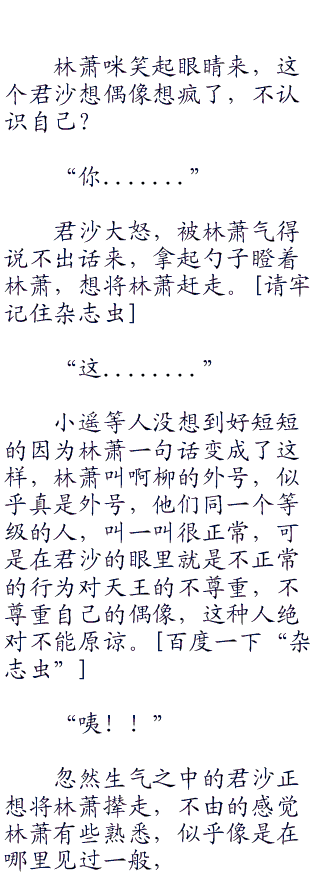 林萧咪笑起眼睛来，这
个君沙想偶像想疯了，不认
识自己？
“你.......”
君沙大怒，被林萧气得
说不出话来，拿起勺子瞪着
林萧，想将林萧赶走。[请牢
记住杂志虫]
“这........”
小遥等人没想到好短短
的因为林萧一句话变成了这
样，林萧叫啊柳的外号，似
乎真是外号，他们同一个等
级的人，叫一叫很正常，可
是在君沙的眼里就是不正常
的行为对天王的不尊重，不
尊重自己的偶像，这种人绝
对不能原谅。[百度一下“杂
志虫”]
“咦！！”
忽然生气之中的君沙正
想将林萧撵走，不由的感觉
林萧有些熟悉，似乎像是在
哪里见过一般，